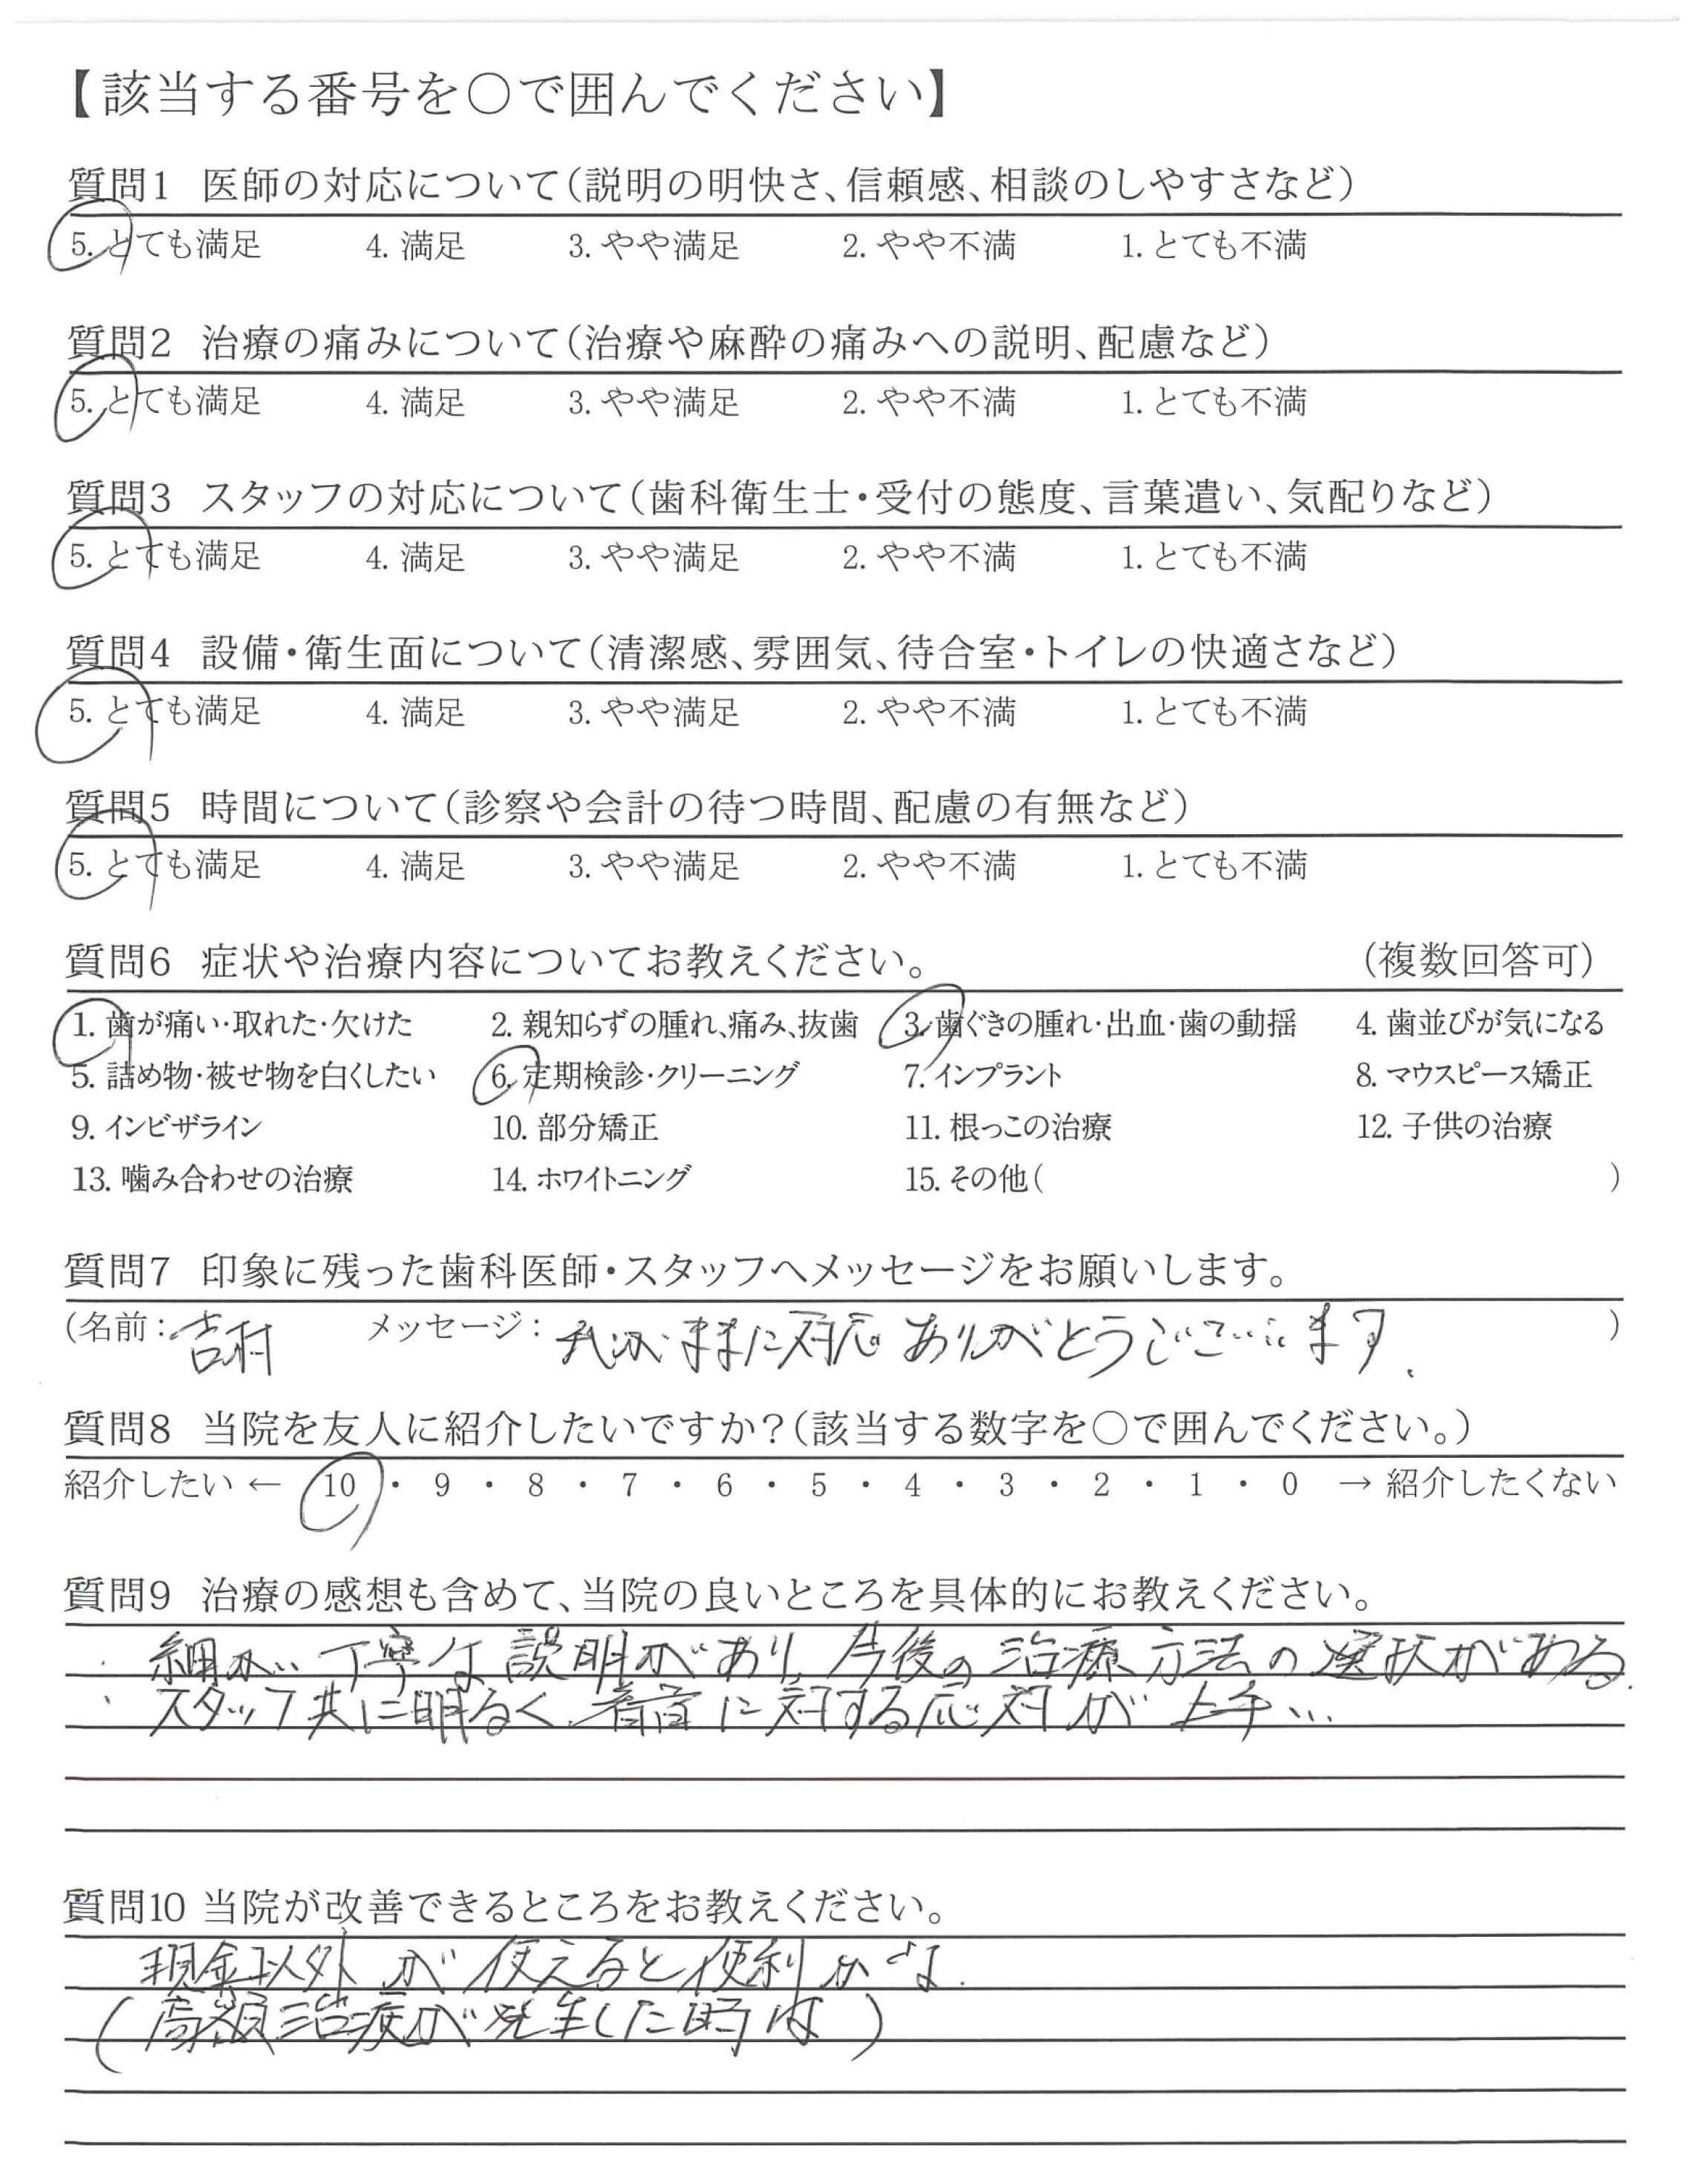 【該当する番号を○で囲んでください】
質問1 医師の対応について(説明の明快さ、信頼感、相談のしやすさなど)
5. とても満足 4. 満足 3. やや満足 2. やや不満 1. とても不満
質問2 治療の痛みについて(治療や麻酔の痛みへの説明、配慮など)
5. とても満足 4. 満足 3. やや満足 2. やや不満 1. とても不満
質問3 スタッフの対応について(歯科衛生士・受付の態度、言葉遣い、気配りなど)
5. とても満足 4. 満足 3. やや満足 2. やや不満 1. とても不満
質問4 設備・衛生面について(清潔感、雰囲気、待合室・トイレの快適さなど)
5. とても満足 4. 満足 3. やや満足 2. やや不満 1. とても不満
質問5 時間について(診察や会計の待つ時間、配慮の有無など)
5. とても満足 4. 満足 3. やや満足 2. やや不満 1. とても不満
質問6 症状や治療内容についてお教えください。 (複数回答可)
1. 歯が痛い・取れた・欠けた 2. 親知らずの腫れ、痛み、抜歯 3. 歯ぐきの腫れ・出血・歯の動揺 4. 歯並びが気になる
5. 詰め物・被せ物を白くしたい 6. 定期検診・クリーニング 7. インプラント 8. マウスピース矯正
9. インビザライン 10. 部分矯正 11. 根っこの治療 12. 子供の治療
13. 噛み合わせの治療 14. ホワイトニング 15. その他( )
質問7 印象に残った歯科医師・スタッフへメッセージをお願いします。
(名前:吉村 メッセージ:わがままに対応ありがとうございます. )
質問8 当院を友人に紹介したいですか?(該当する数字を○で囲んでください。)
紹介したい ← 10 ・ 9 ・ 8 ・ 7 ・ 6 ・ 5 ・ 4 ・ 3 ・ 2 ・ 1 ・ 0 → 紹介したくない
質問9 治療の感想も含めて、当院の良いところを具体的にお教えください。
・細かい丁寧な説明があり、今後の治療方法の選択がある.
・スタッフ共に明るく、患者に対する応対が上手い.
質問10 当院が改善できるところをお教えください。
現金以外が使えると便利かな.
(高額治療が発生した時は)